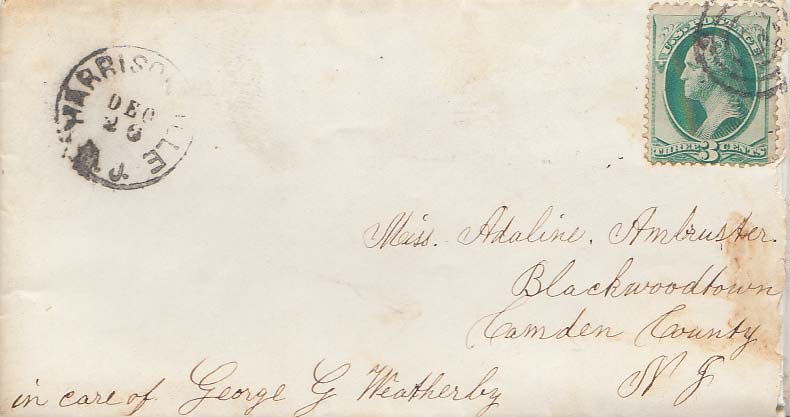 HARRISONVILLE N.J.
DEC
26
THREE 3 CENTS
Miss. Adaline. Ambruster.
Blackwoodtown
Camden County
N J
in care of George G Weatherby